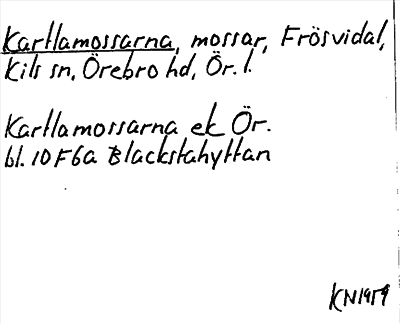 Kartlamossarna, mossar, Frösvidal,
Kils sn, Örebro hd, Ör. l.
Kartlamossarna ek Ör.
bl. 10F6a Blackstahyttan
KN1959